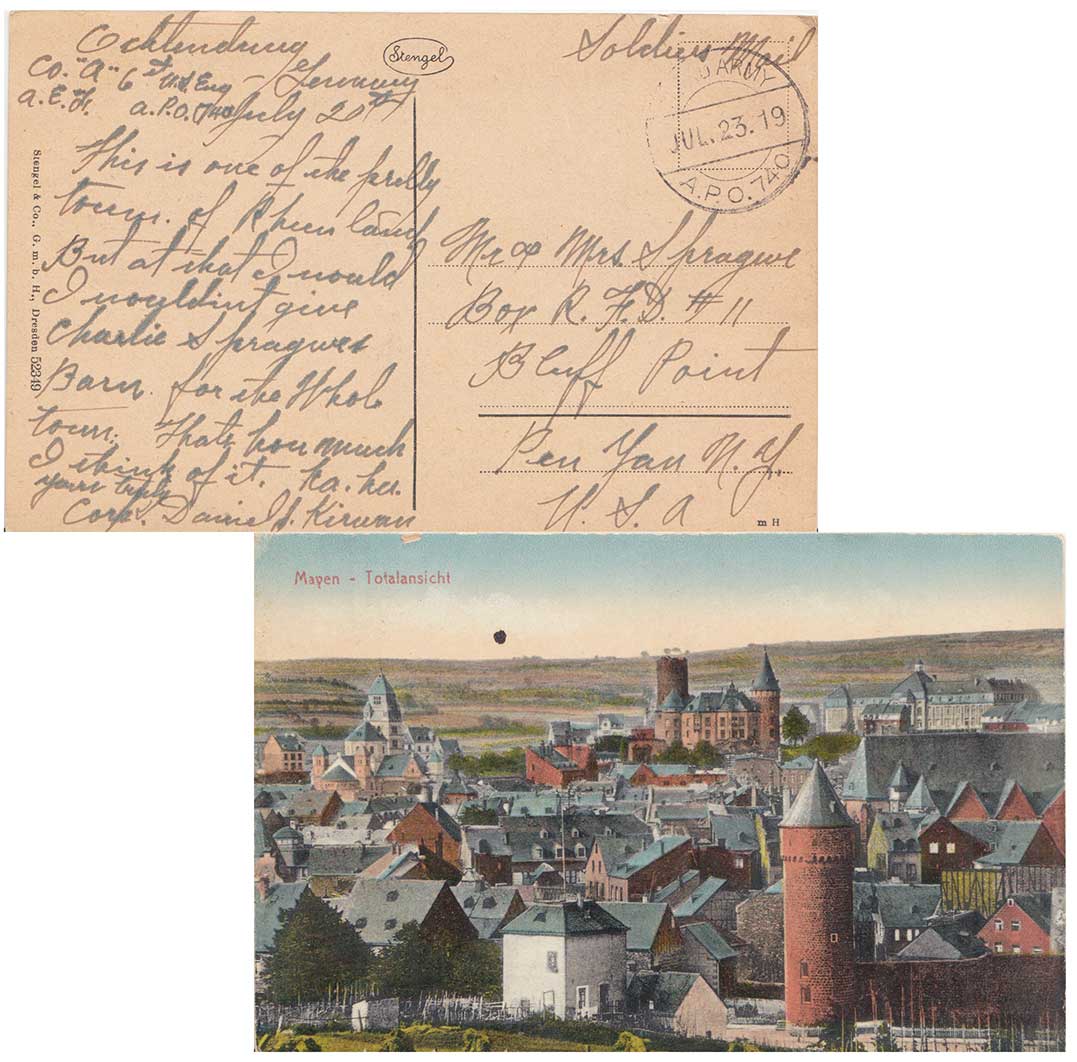 Ochtendung
Germany
Co. "A" 6th U.S. Eng
A.E.F. A.P.O. 740 July 20th
This is one of the prettly
town. of Rhein land
But at that I would
I wouldint give
Charlie Spragues
Barn. for the Whole
town. Thats how much
I think of it. ha. ha.
yours truly
Corp. Daniel J. Kirwan
Stengel & Co., G. m. b. H., Dresden 52349
Stengel
Soldiers Mail
ARMY
JUL. 23. 19
A.P.O. 740
Mr & Mrs. Sprague
Box R. F. D. # 11
Bluff Point
Pen Yan N. Y.
U. S. A
m H
Mayen - Totalansicht